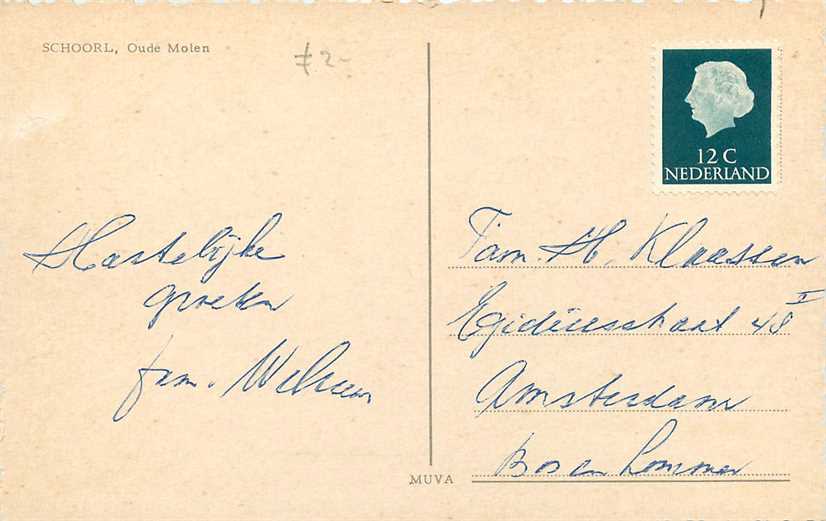 SCHOORL, Oude Molen
f 2-
12 C
NEDERLAND
Hartelijke
groeten
fam.
Fam. H. Klaassen
Egidiusstraat 48 II
Amsterdam
Bos en Lommer
MUVA